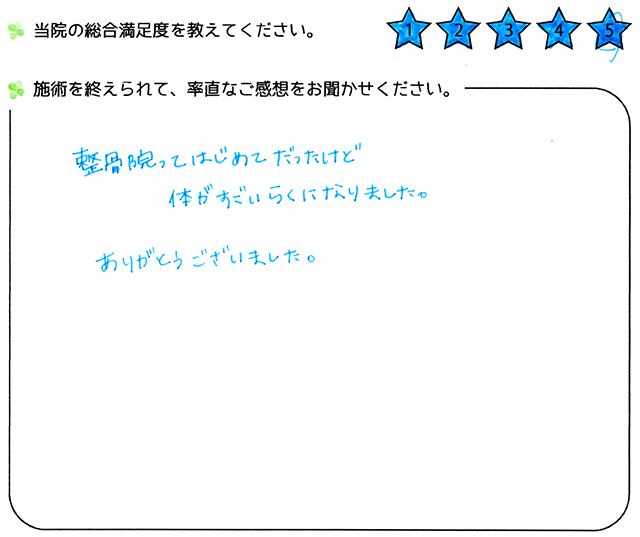 当院の総合満足度を教えてください。
1 2 3 4 5
施術を終えられて、率直なご感想をお聞かせください。
整骨院ってはじめてだったけど
体がすごいらくになりました。
ありがとうございました。